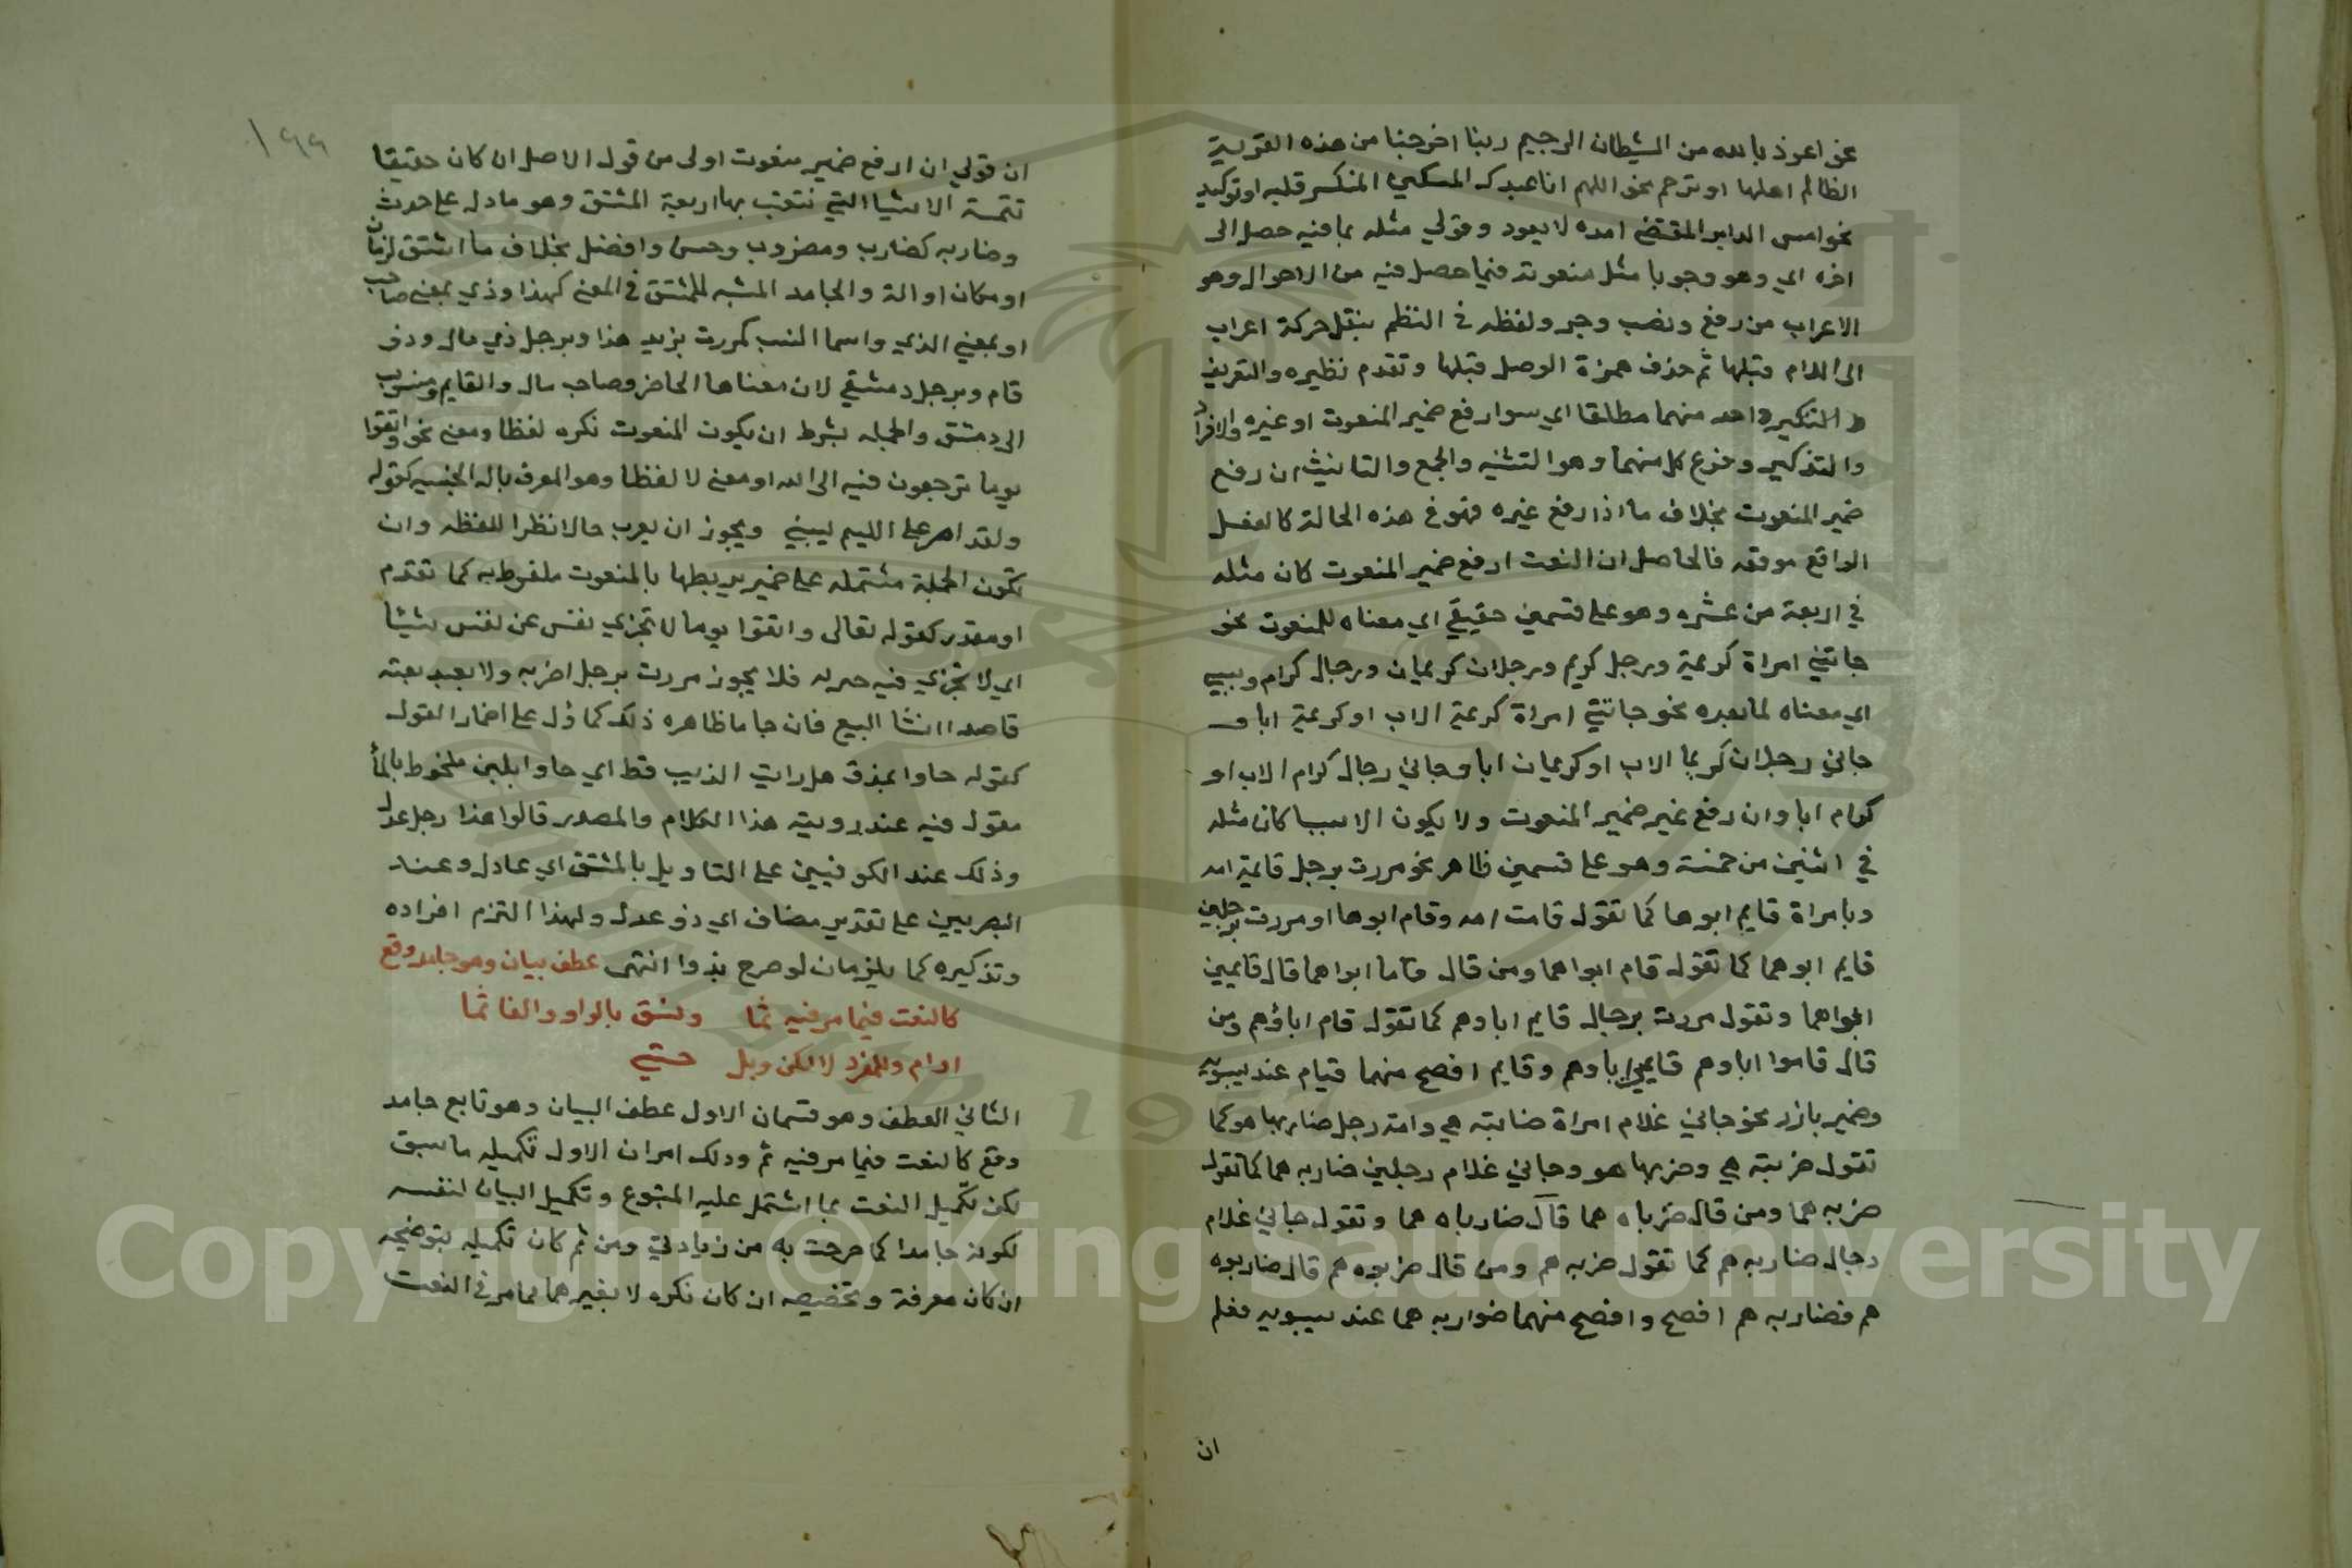 نحو اعوذ بالله من الشيطان الرجيم ربنا اخرجنا من هذه القرية
الظالم اهلها او ترحم نحو اللهم انا عبدك المسكين المنكسر قلبه او توكيد
نحو امس الدابر المقتضي امده لا يعود وقولي مثله بما فيه حصل الى
اخره اي وهو وجوبا مثل منعوته فيما حصل فيه من الاحوال وهو
الاعراب من رفع ونصب وجر ولفظه في النظم بنقل حركة اعراب
الى اللام قبلها ثم حذف همزة الوصل قبلها وتقدم نظيره والتعريف
والتنكير واحد منهما مطلقا اي سوا رفع ضمير المنعوت او غيره والافراد
والتذكير وفرع كل منهما وهو التثنيه والجمع والتانيث ان رفع
ضمير المنعوت بخلاف ما اذا رفع غيره فهو في هذه الحالة كالفعل
الواقع موقعه فالحاصل ان النعت ان رفع ضمير المنعوت كان مثله
في اربعة من عشره وهو على قسمين حقيقي اي معناه للمنعوت نحو
جاتني امراة كريمة ورجل كريم ورجلان كريمان ورجال كرام وسببي
اي معناه لما بعده نحو جاتني امراة كريمة الاب او كريمة ابا و
جاني رجلان كريما الاب او كريمان ابا وجاني رجال كرام الاب او
كرام ابا وان رفع غير ضمير المنعوت ولا يكون الا سببيا كان مثله
في اثنين من خمسة وهو على قسمين ظاهر نحو مررت برجل قايمة امه
وبامراة قايم ابوها كما تقول قامت امه وقام ابوها او مررت برجلين
قايم ابوهما كما تقول قام ابواهما ومن قال قاما ابواهما قال قايمين
ابواهما وتقول مررت برجال قايم اباوهم كما تقول قام اباؤهم ومن
قال قاموا اباوهم قايمين اباوهم وقايم افصح منهما قيام عند سيبويه
وضمير بارز نحو جاني غلام امراة ضاربته هي وامة رجل ضاربها هو كما
تقول ضربته هي وضربها هو وجاني غلام رجلين ضاربه هما كما تقول
ضربه هما ومن قال ضرباه هما قال ضارباه هما وتقول جاني غلام
رجال ضاربه هم كما تقول ضربه هم ومن قال ضربوه هم قال ضاربوه
هم فضاربه هم افصح وافصح منهما ضواربه هما عند سيبويه فعلم
ان
١٩٩
ان قولي ان رفع ضمير منعوت اولى من قول الاصل ان كان حقيقا
تتمة الاشيا التي نتعت بها اربعة المشتق وهو ما دل على حدث
وضاربه كضارب ومضروب وحسن وافضل بخلاف ما اشتق لزمان
او مكان او الة والجامد المشبه للمشتق في المعنى كهذا وذي بمعنى صاحب
او بمعنى الذي واسما النسب كمررت بزيد هذا وبرجل ذي مال وذو
قام وبرجل دمشقي لان معناها الحاضر وصاحب مال والقايم ومنسوب
الى دمشق والجمله بشرط ان يكون المنعوت نكره لفظا ومعنى نحو واتقوا
يوما ترجعون فيه الى الله او معنى لا لفظا وهو المعرف بال الجنسيه كقوله
ولقد امر على الليم يسبني ويجوز ان يعرب حالا نظرا للفظه وان
تكون الجملة مشتمله على ضمير يربطها بالمنعوت ملفوظ به كما تقدم
او مقدر كقوله تعالى واتقوا يوما لا تجزي نفس عن نفس شيئا
اي لا تجزي فيه فلا يجوز مررت برجل اضربه ولا بعبد بعته
قاصدا انشا البيع فان جا ما ظاهره ذلك كما ؤل على اضمار القول
كقوله جاوا بمذق هل رايت الذيب قط اي جاوا بلبن مخلوط بالمأ
مقول فيه عند رويته هذا الكلام والمصدر قالوا هذا رجل عدل
وذلك عند الكوفيين على التاويل بالمشتق اي عادل وعند
البصريين على تقدير مضاف اي ذو عدل ولهذا التزم افراده
وتذكيره كما يلزمان لو صرح بذوا انتهى عطف بيان وهو جامد وقع
كالنعت فيما مر فيه ثما ونسق بالواو والفا ثما
او ام وللمفرد لا لكن وبل حتى
الثاني العطف وهو قسمان الاول عطف البيان وهو تابع جامد
وقع كالنعت فيما مر فيه ثم وذلك امران الاول تكميله ما سبق
لكن تكميل النعت بما اشتمل عليه المتبوع وتكميل البيان لنفسه
لكونه جامدا كما صرحت به من زيادتي ومن ثم كان تكميله بتوضيحه
ان كان معرفة وتخصيصه ان كان نكره لا بغيرهما مما مر في النعت
Copyright © King Saud University